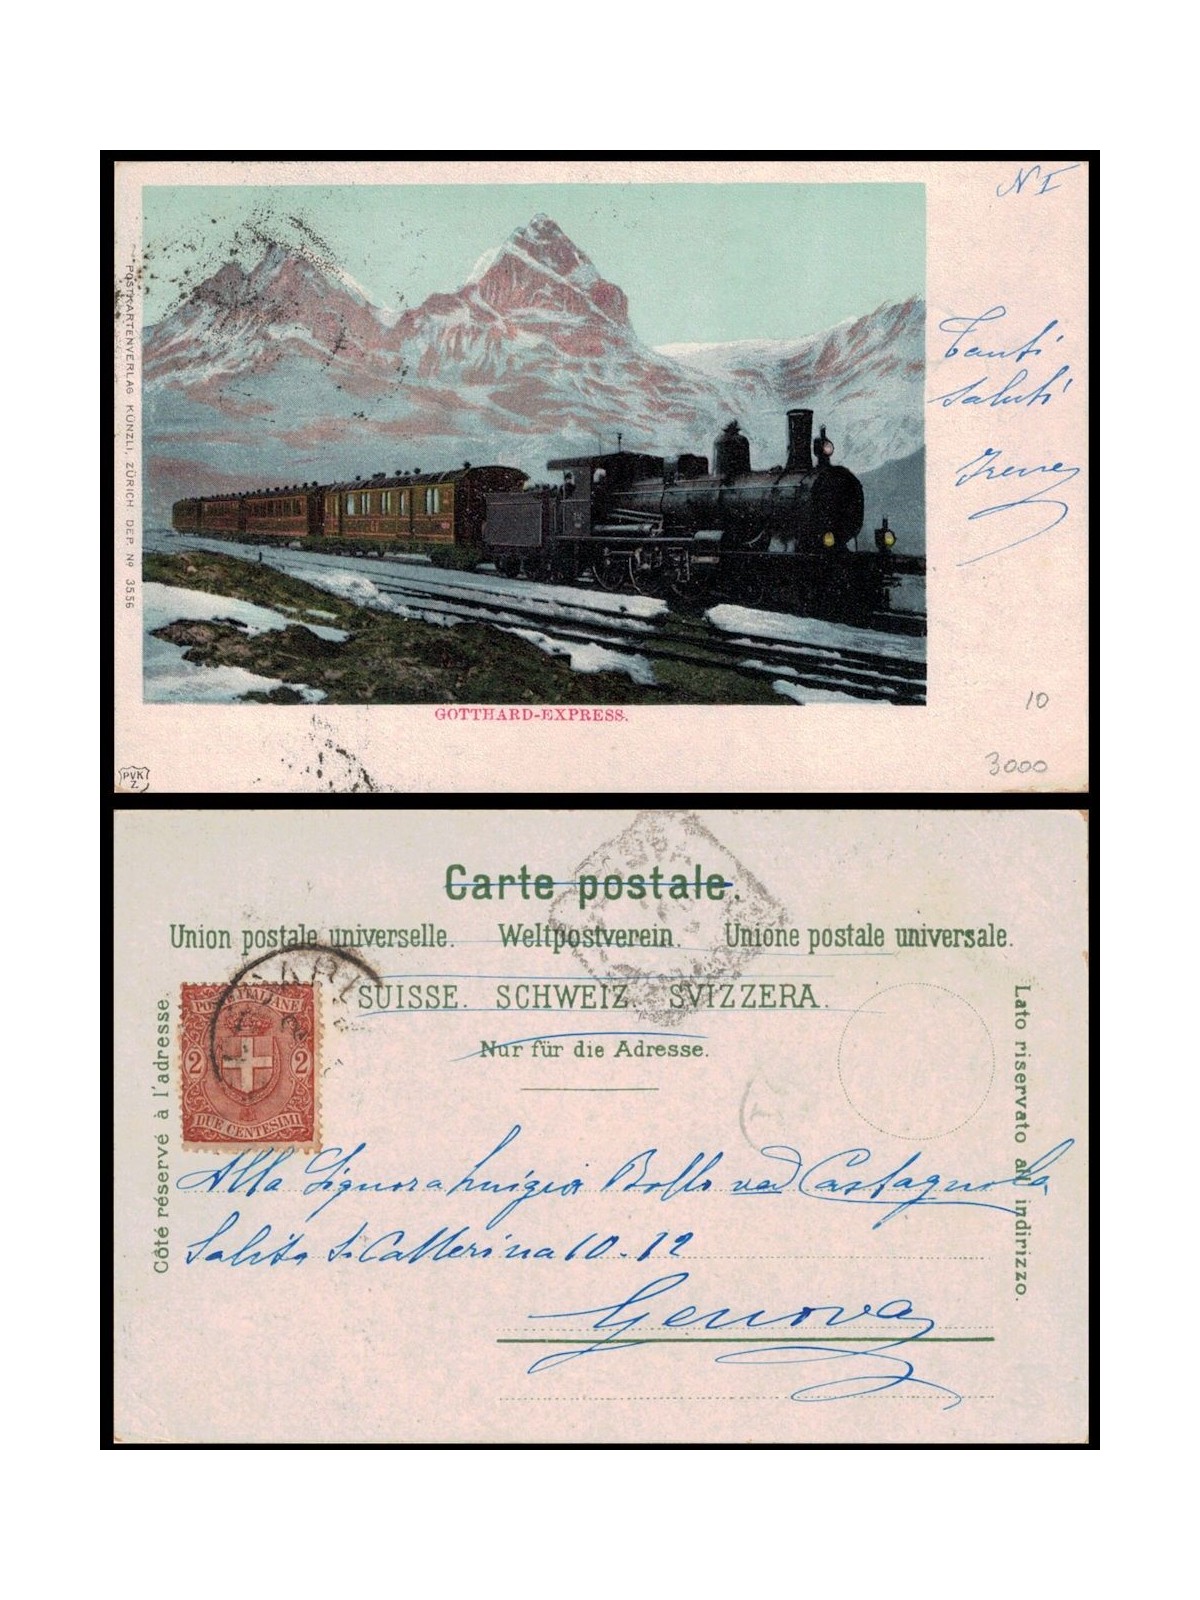 N I
Tanti
saluti
Irene
POSTKARTENVERLAG KÜNZLI, ZÜRICH DEP. Nº 3556
GOTTHARD-EXPRESS.
10
3000
PVK
Z.
Carte postale.
Union postale universelle. Weltpostverein. Unione postale universale.
SUISSE. SCHWEIZ. SVIZZERA.
Nur für die Adresse.
Côté réservé à l'adresse.
Lato riservato all' indirizzo.
POSTE ITALIANE
2 2
DUE CENTESIMI
Alla Signora Luigia Bollo ved Castagnola
Salita S. Catterina 10-12
Genova